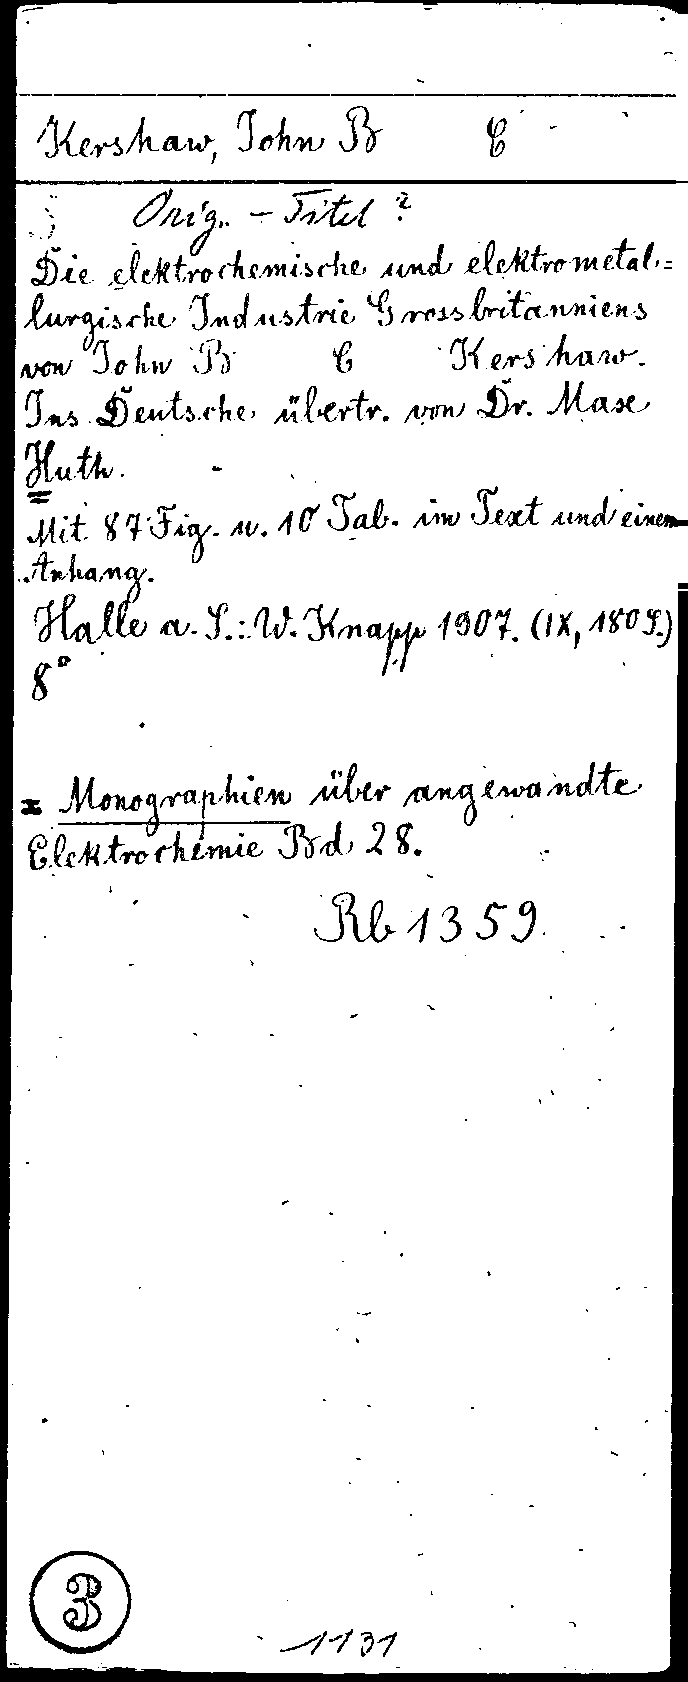 Kershaw, John B C
Orig. - Titel ?
Die elektrochemische und elektrometal-=
lurgische Industrie Grossbritanniens
von John B C Kershaw.
Ins Deutsche übertr. von Dr. Max
Huth.
Mit 87 Fig. u. 10 Tab. im Text und einem
Anhang.
Halle a. S.: W. Knapp 1907. (IX, 180 S.)
8°
= Monographien über angewandte
Elektrochemie Bd 28.
Rb 1359
3
1131